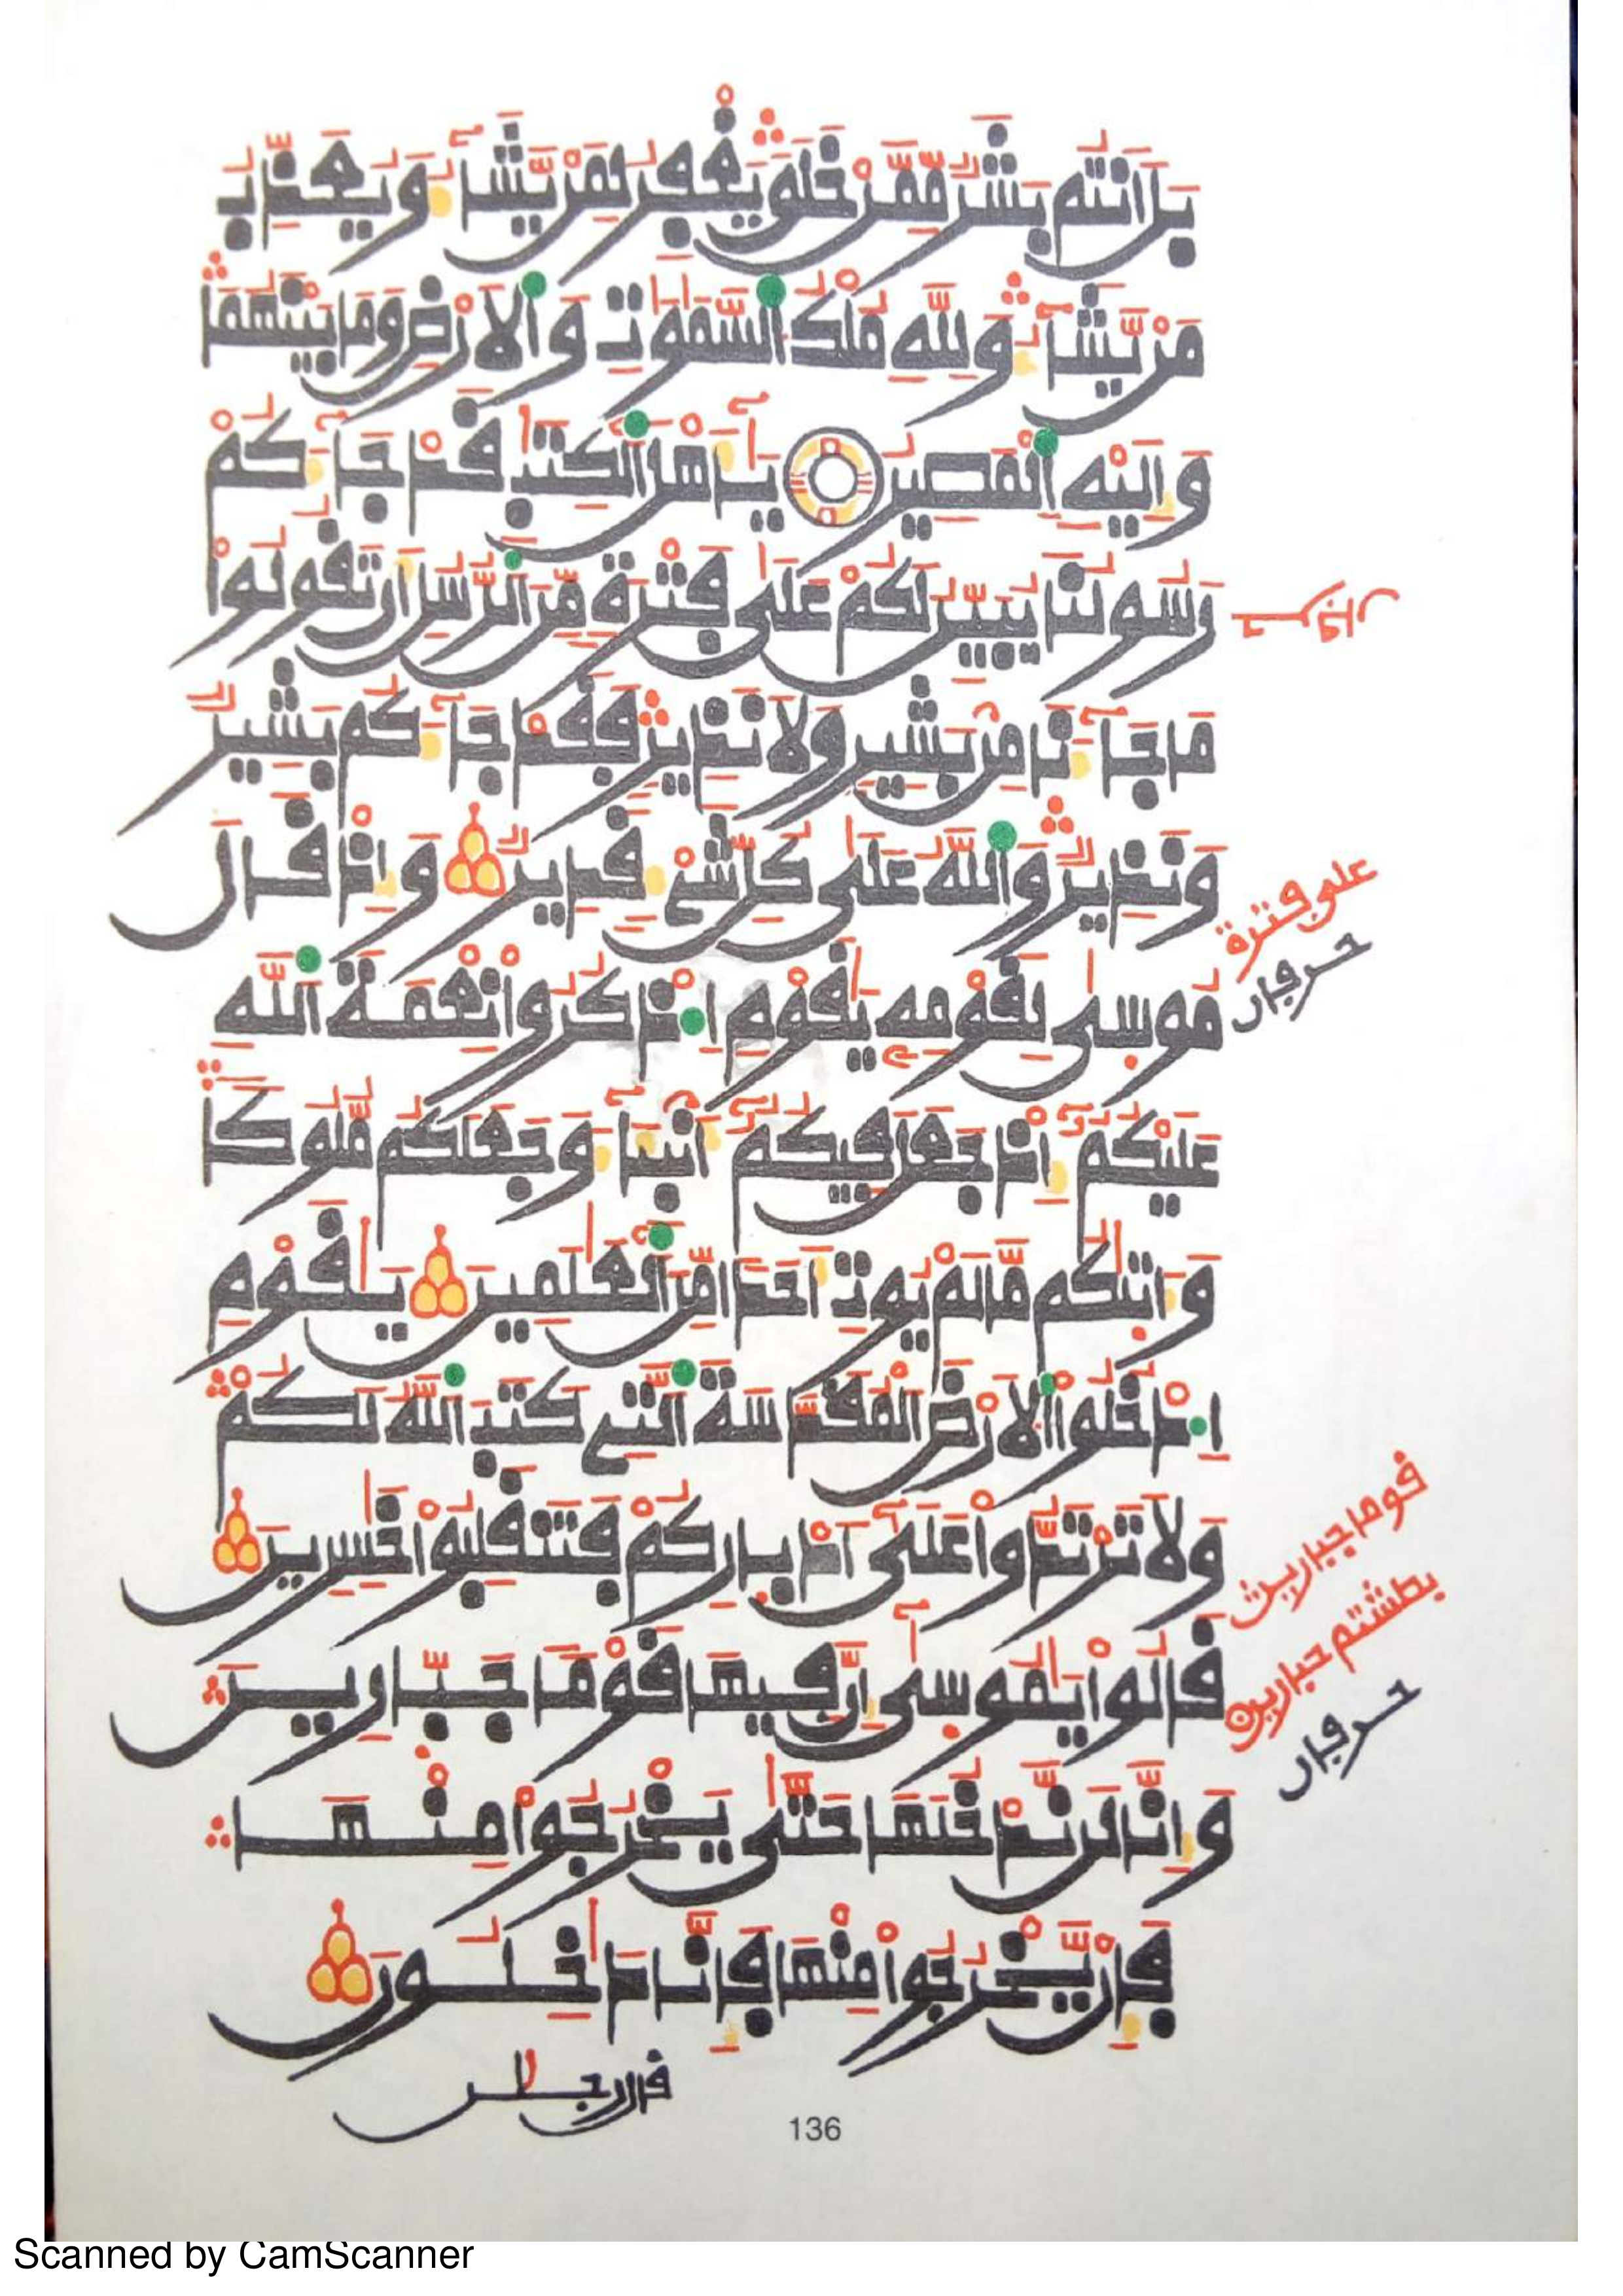 بَلَ اَنتُم بَشَرٞ مِّمَّنْ خَلَقَ يَغْفِرُ لِمَنْ يَّشَآءُ وَيُعَذِّبُ
مَنْ يَّشَآءُ وَلِلهِ مُلْكُ اُلسَّمَٰوَٰتِ وَالَارْضِ وَمَا بَيْنَهُمَا
وَإِلَيْهِ اِ۬لْمَصِيرُ يَٰٓأَهْلَ اَ۬لْكِتَٰبِ قَدْ جَآءَكُمْ
رَسُولُنَا يُبَيِّنُ لَكُمْ عَلَىٰ فَتْرَةٖ مِّنَ اَ۬لرُّسُلِ أَن تَقُولُوا۟
مَا جَآءَنَا مِنۢ بَشِيرٖ وَلَا نَذِيرٖ فَقَدْ جَآءَكُم بَشِيرٞ
وَنَذِيرٞ وَاللَّهُ عَلَىٰ كُلِّ شَےْءٖ قَدِيرٞ وَإِذْ قَالَ
مُوسَىٰ لِقَوْمِهِۦ يَٰقَوْمِ اِ۟ذْكُرُوا۟ نِعْمَةَ اَ۬للَّهِ
عَلَيْكُمُۥٓ إِذْ جَعَلَ فِيكُمُۥٓ أَنۢبِئَآءَ وَجَعَلَكُم مُّلُوكاٗ
وَءَاتَىٰكُم مَّا لَمْ يُوتِ أَحَداٗ مِّنَ اَ۬لْعَٰلَمِينَ يَٰقَوْمِ
اِ۟دْخُلُوا۟ اُ۬لَارْضَ اَ۬لْمُقَدَّسَةَ اَ۬لتِے كَتَبَ اَ۬للَّهُ لَكُمْ
وَلَا تَرْتَدُّوا۟ عَلَىٰٓ أَدْبَٰرِكُمْ فَتَنقَلِبُوا۟ خَٰسِرِينَ
قَالُوا۟ يَٰمُوسَىٰٓ إِنَّ فِيهَا قَوْماٗ جَبّ۪ارِينَ
وَإِنَّا لَن نَّدْخُلَهَا حَتَّىٰ يَخْرُجُوا۟ مِنْهَا
فَإِنْ يَّخْرُجُوا۟ مِنْهَا فَإِنَّا دَٰخِلُونَ
على فترة
حرفان
قوما جبارين
بطشتم جبارين
حرفان
قال رجلن
136
Scanned by CamScanner